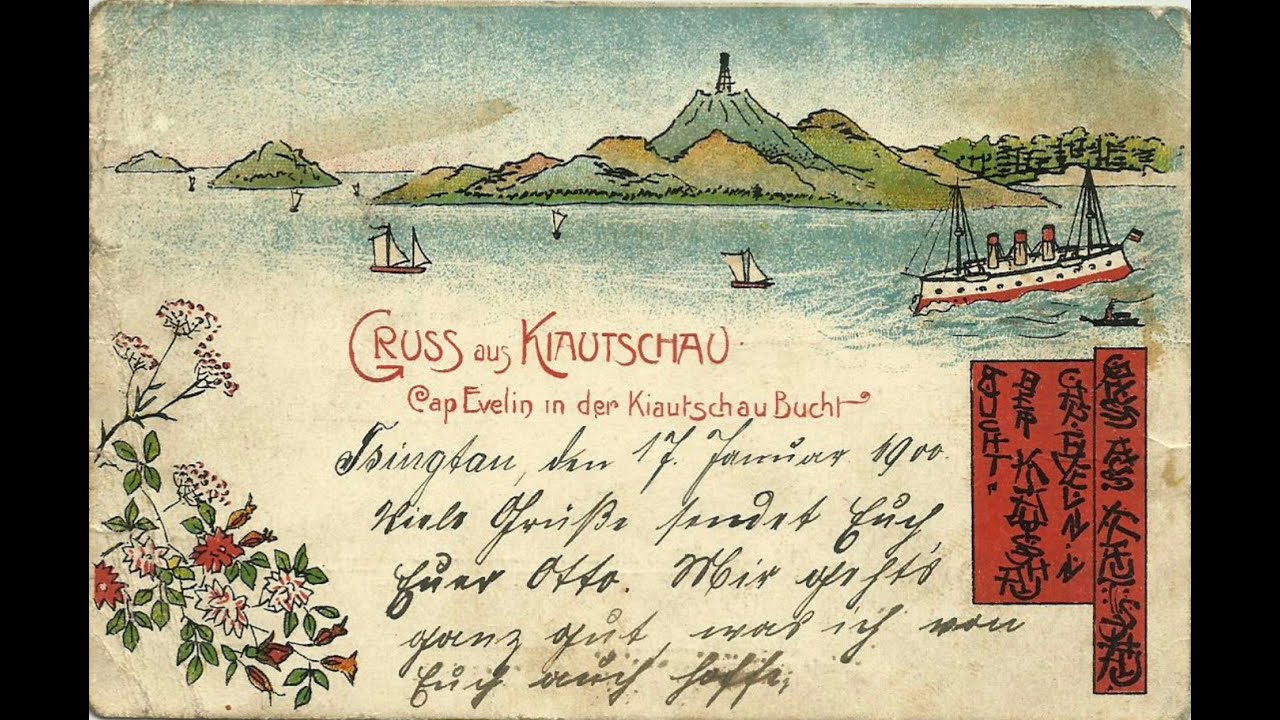 GRUSS aus KIAUTSCHAU.
Cap Evelin in der Kiautschau Bucht
Tsingtau, den 17. Januar 1900.
Viele Grüße sendet Euch
Euer Otto. Mir geht's
ganz gut, was ich von
Euch auch hoffe,
GRUSS AUS KIAUTSCHAU
CAP EVELIN IN
DER KIAUTSCHAU
BUCHT